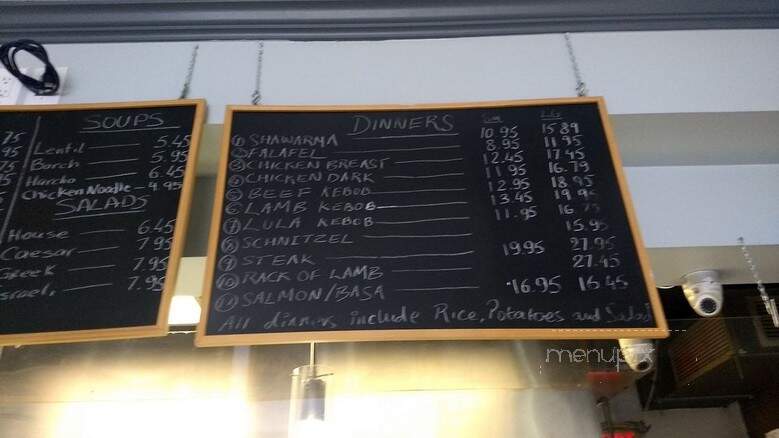 SOUPS
75 Lentil 5.45
95 Borch 5.95
75 Harcho 6.45
95 Chicken Noodle 4.95
SALADS
House 6.45
Caesar 7.95
Greek 7.95
Israeli 7.95
DINNERS
SM LG
1 SHAWARMA 10.95 15.89
2 FALAFEL 8.95 11.95
3 CHICKEN BREAST 12.45 17.45
4 CHICKEN DARK 11.95 16.79
5 BEEF KEBOB 12.95 18.95
6 LAMB KEBOB 13.45
7 LULA KEBOB 11.95
8 SCHNITZEL 15.95
9 STEAK 19.95 27.95
10 RACK OF LAMB 27.45
11 SALMON/BASA 16.95
All dinners include Rice, Potatoes and Salad
menupix